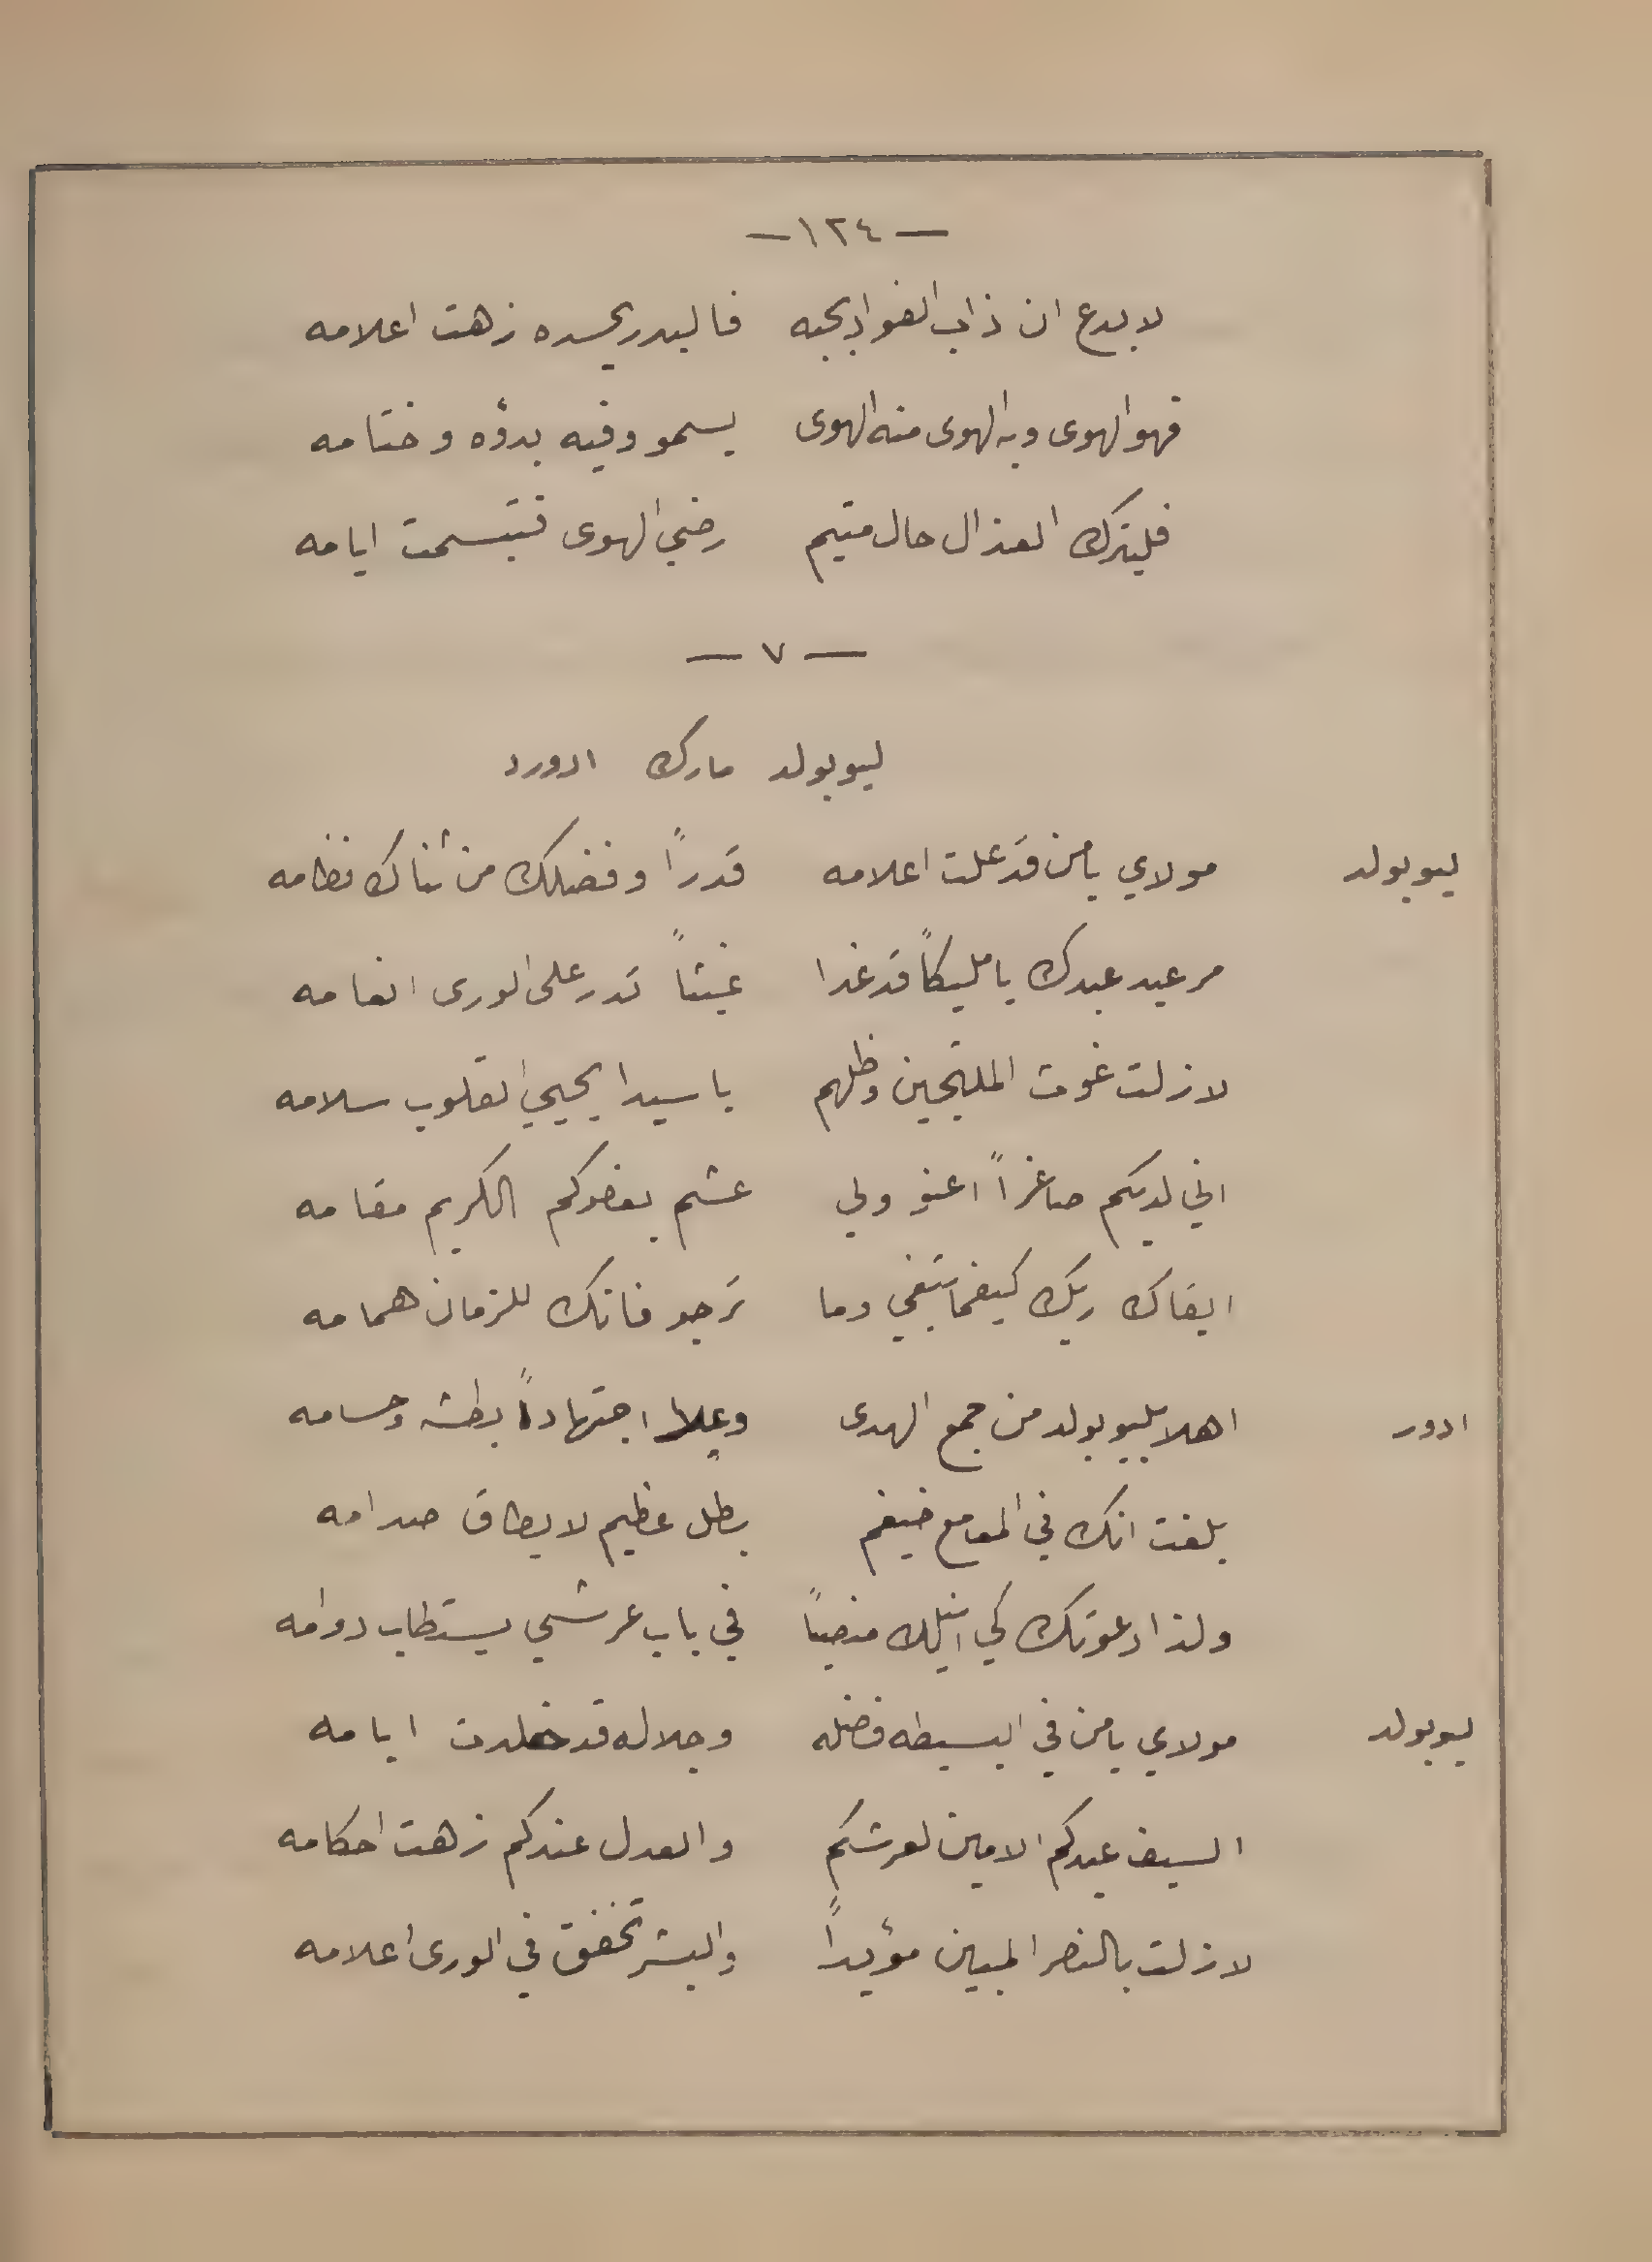 — ١٢٤ —
لا بدع ان ذاب الفواد بحبه فالبدر يحسده زهت اعلامه
فهو الهوى وبه الهوى منه الهوى يسمو وفيه بدؤه وختامه
فليترك العذال حال متيم رضي الهوى فتبسمت ايامه
— ٧ —
ليوبولد مارك ادورد
ليوبولد مولاي يا من قد علت اعلامه قدراً وفضلك من ثناك نظامه
مر عبد عبدك يا مليكاً قد غدا غيثاً تدر على الورى انعامه
لا زلت غوث الملتجين وظلهم يا سيدا يحيي القلوب سلامه
اني لديكم صاغراً اعنو ولي عشم بعفوكم الكريم مقامه
ابقاك ربك كيفما تبغي وما ترجو فانك للزمان همامه
ادور اهلا بليوبولد من جمع الهدى وعلا اجتهاداً بطشه وحسامه
بلغت انك في المعامع ضيغم بطل عظيم لا يطاق صدامه
ولذا دعوتك كي انيلك منصباً في باب عرشي يستطاب دوامه
ليوبولد مولاي يا من في البسيطه فضله وجلاله قد خلدت ايامه
السيف عبدكم الامين لعرشكم والعدل عندكم زهت احكامه
لا زلت بالنصر المبين مؤيداً والبشر تخفق في الورى اعلامه